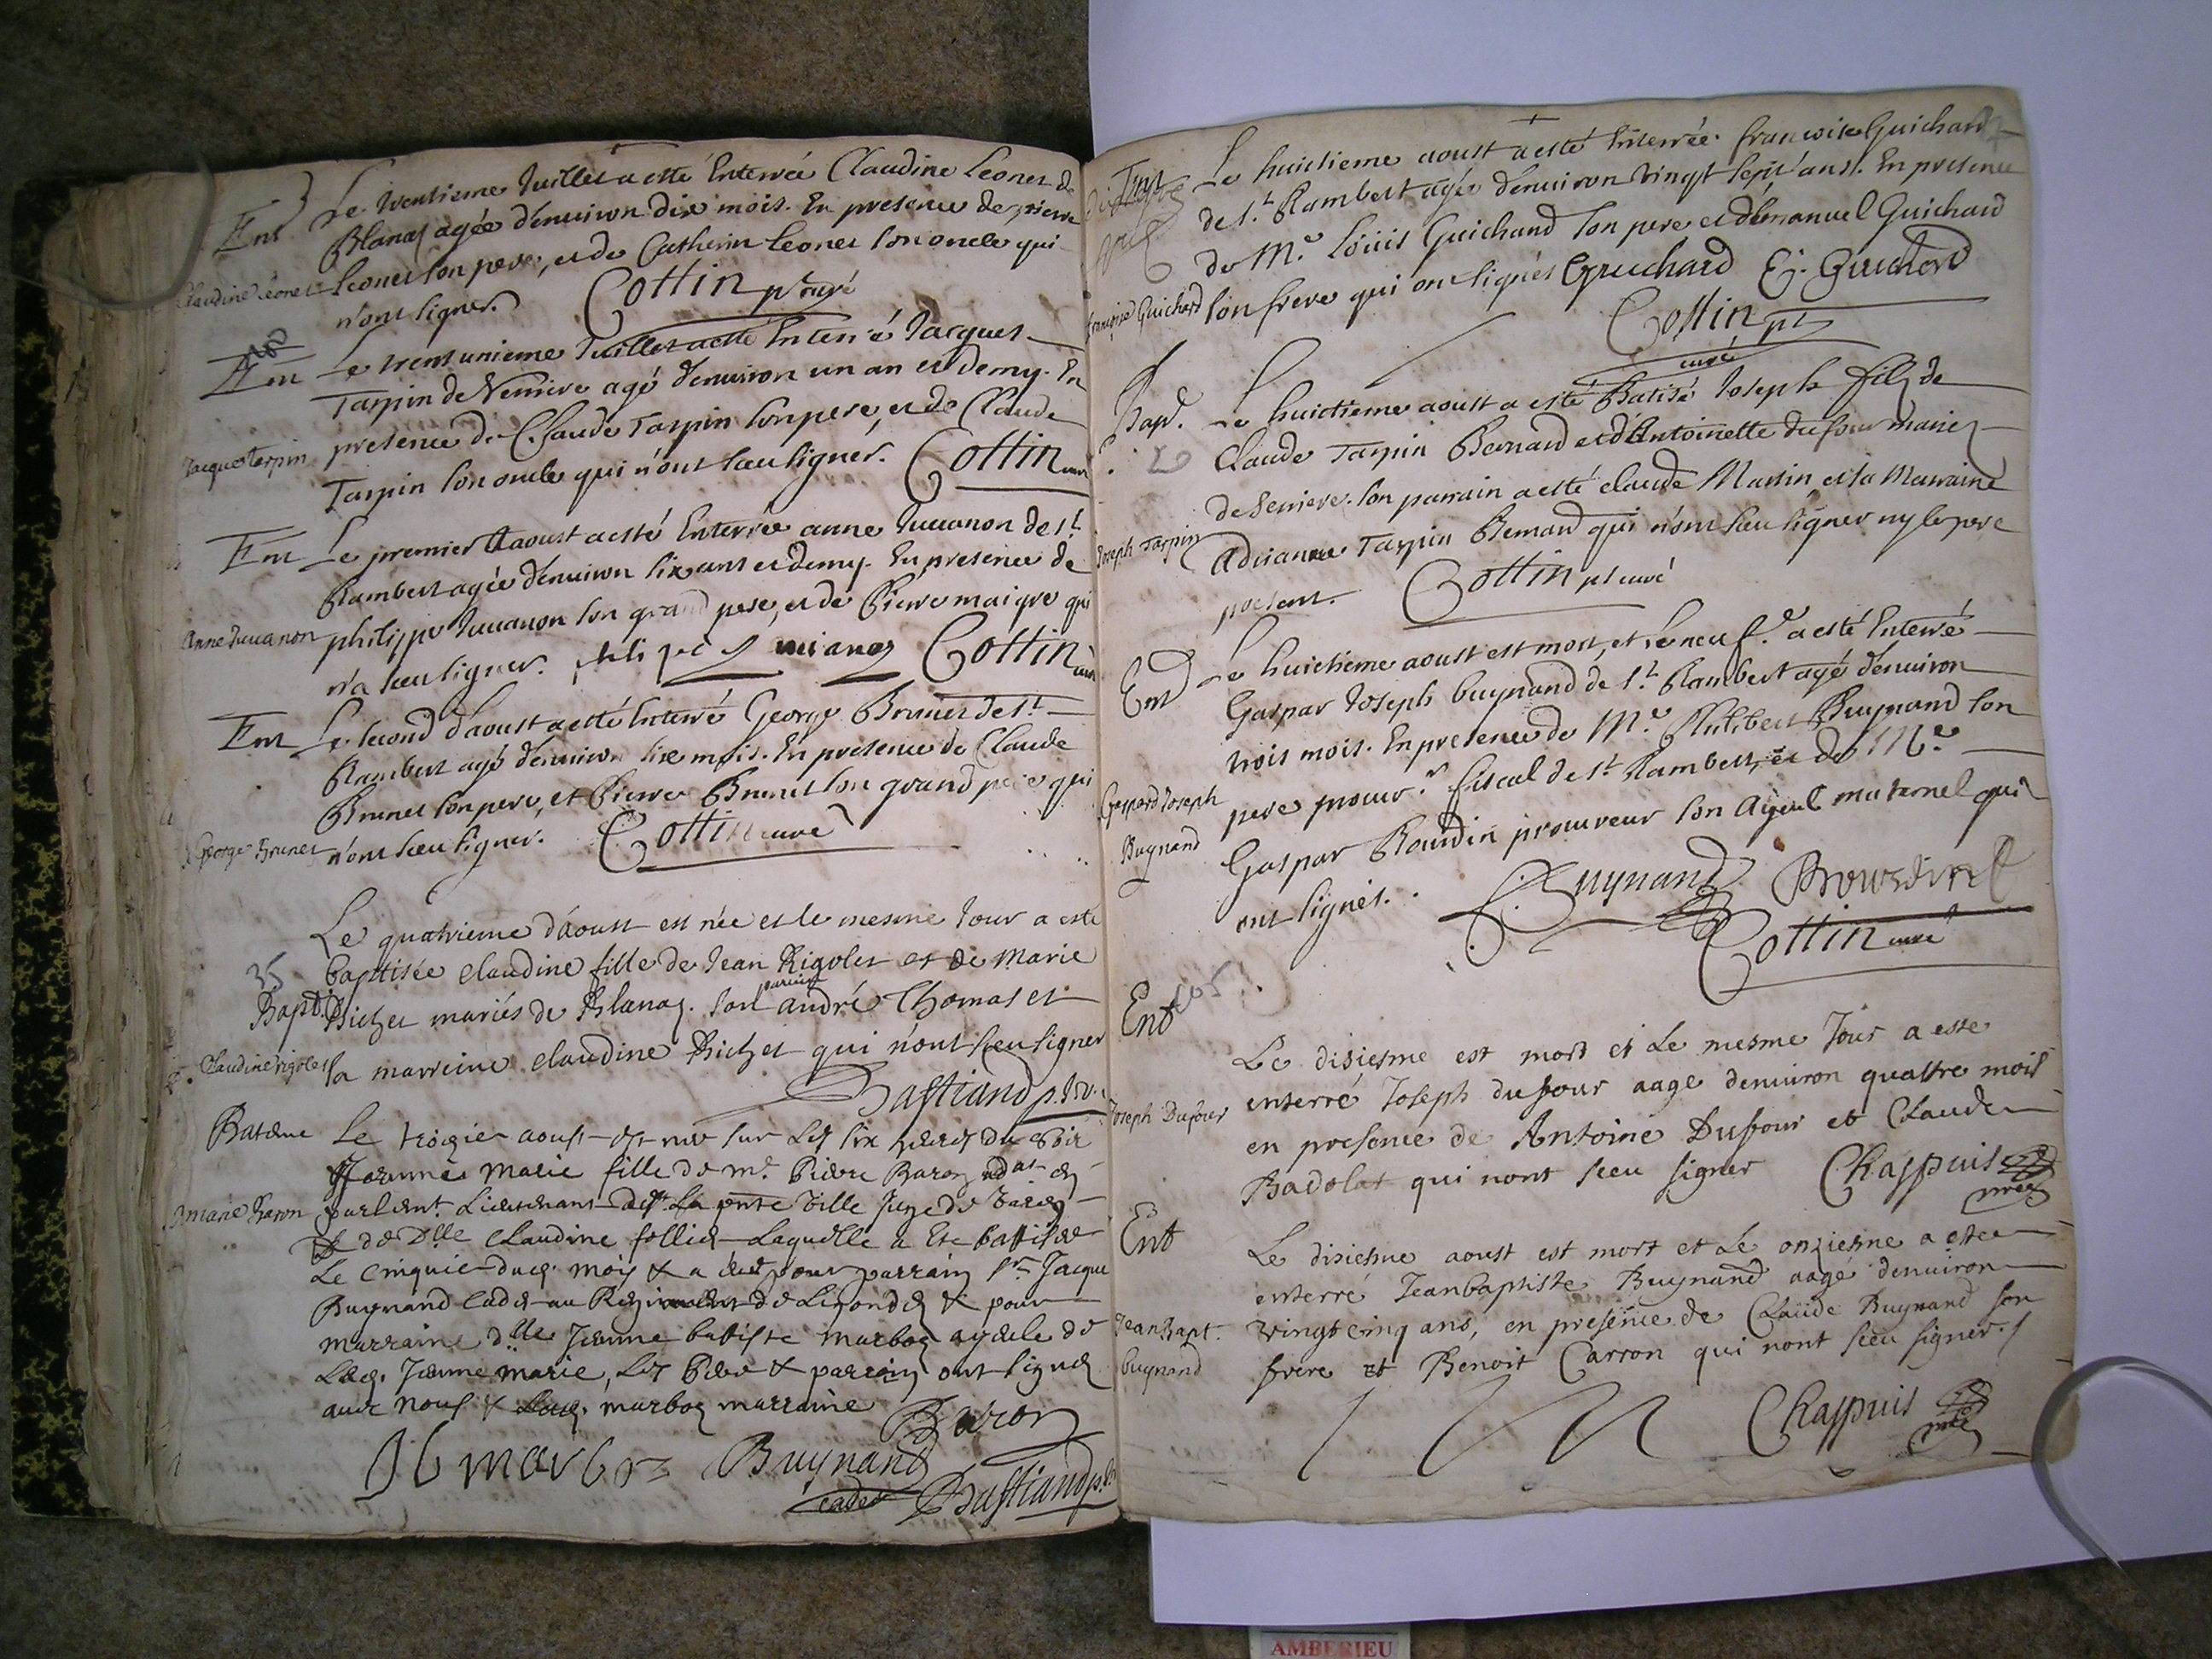 Ent Le trentieme Juillet a esté Enterrée Claudine Leonet de
Blanaz agée d'enuiron dix mois. En presence de pierre
Claudine Leonet Leonet son pere, et de Catherin Leonet son oncle qui
n'ont signer. Cottin p. curé
Ent Le trent unieme Juillet a esté Enterré Jacques
Tarpin de Serrieve agé d'enuiron un an et demy. En
presence de Claude Tarpin son pere, et de Claude
Jacques Tarpin Tarpin son oncle qui n'ont sceu signer. Cottin curé
Ent Le premier d'aoust a esté Enterrée anne Juuanon de St.
Rambert agée d'enuiron six ans et demy. En presence de
Anne Juuanon philippe Juuanon son grand pere, et de Pierre maigre qui
n'a sceu signer. Cottin curé
Ent Le second d'aoust a esté Enterré George Brunet de St.
Rambert agé d'enuiron six mois. En presence de Claude
Brunet son pere, et Pierre Brunet son grand pere qui
George Brunet n'ont sceu signer. Cottin curé
Le quatrieme d'aoust est née et le mesme Jour a esté
35 baptisée Claudine fille de Jean Rigolet et de Marie
Bapt. Bichet mariés de Blanaz. son parrain andré Thomas et
Claudine rigolet sa marreine Claudine Bichet qui n'ont sceu signer
Bastiand p. vic.
Bateme Le trozie aoust est nee sur Les six heures du soir
Jeanne Marie fille de mr. Pierre Baron adat en
marie Baron parlemt. Lieutenant de La pnte Ville Juge de
& de Dlle Claudine follier Laquelle a Ete battisée
Le Cinquie dud. mois & a eut pour parrain sr. Jacque
Buynand Cadet au Regiment de & pour
marraine dlle Jeanne battiste marboz ayeule de
Lad. Jeanne marie, Les Pere & parrain ont signez
auec nous & Lad. marboz marraine Baron
Jb marboz Buynand
cadet Bastiand p. v.
Ent Le huictieme aoust a esté Enterrée francoise Guichard
de St. Rambert agée d'enuiron vingt sept ans. En presence
de Me. Loüis Guichard son pere et d'Emanuel Guichard
francoise Guichard son frere qui ont signés Guichard E. Guichard
Cottin pt
curé
Bapt. Le huictieme aoust a esté Batisé Joseph fils de
Claude Tarpin Bernard et d'Antoinette dufour mariez
de Serrieve. son parrain a esté claude Martin et sa Marraine
Joseph Tarpin Adrianne Tarpin Bernard qui n'ont sceu signer ny le pere
present. Cottin pt curé
Ent Le huictieme aoust est mort, et le neuf.e a esté Enterré
Gaspar Joseph buynand de St. Rambert agé d'enuiron
trois mois. En presence de Me. Philibert Buynand son
Gaspard Joseph pere procur.r fiscal de St. Rambert, et de Me.
Buynand Gaspar Roudin procureur son Ayeul maternel qui
ont signés. Buynand
Cottin curé
Ent
Le disiesme est mort et Le mesme Jour a este
enterré Joseph dufour aage denuiron quattre mois
Joseph Dufour en presence de Antoine Dufour et Claude
Badolat qui nont sceu signer Chappuis
vire
Ent Le disiesme aoust est mort et Le onziesme a estee
enterré Jeanbaptiste Buynand aagé denuiron
Jean Bapt. vingt cinq ans, en presence de Claude Buynand son
buynand frere et Benoit Carron qui nont sceu signer.
Chappuis
vire
AMBERIEU